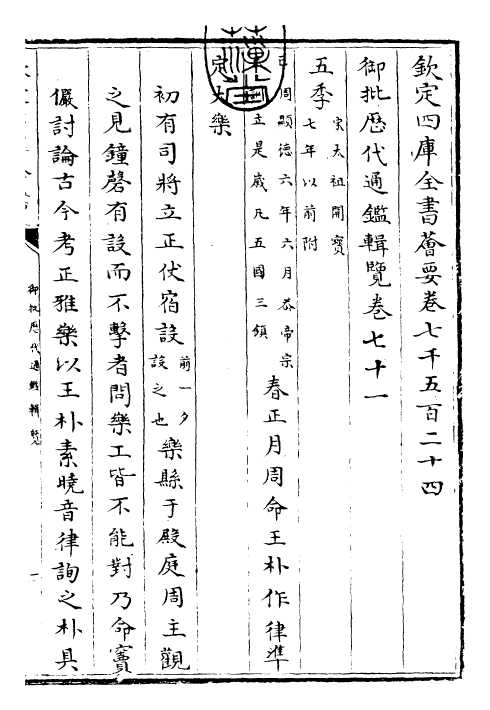 欽定四庫全書薈要卷七千五百二十四
御批歷代通鑑輯覽卷七十一
五季
宋太祖開寶
七年以前附
周顯德六年六月恭帝宗
立是歲凡五國三鎮
春正月周命王朴作律準
定大樂
初有司將立正仗宿設
前一夕
設之也
樂縣于殿庭周主觀
之見鐘磬有設而不擊者問樂工皆不能對乃命竇
儼討論古今考正雅樂以王朴素曉音律詢之朴具
御批歷代通鑑輯覽
一